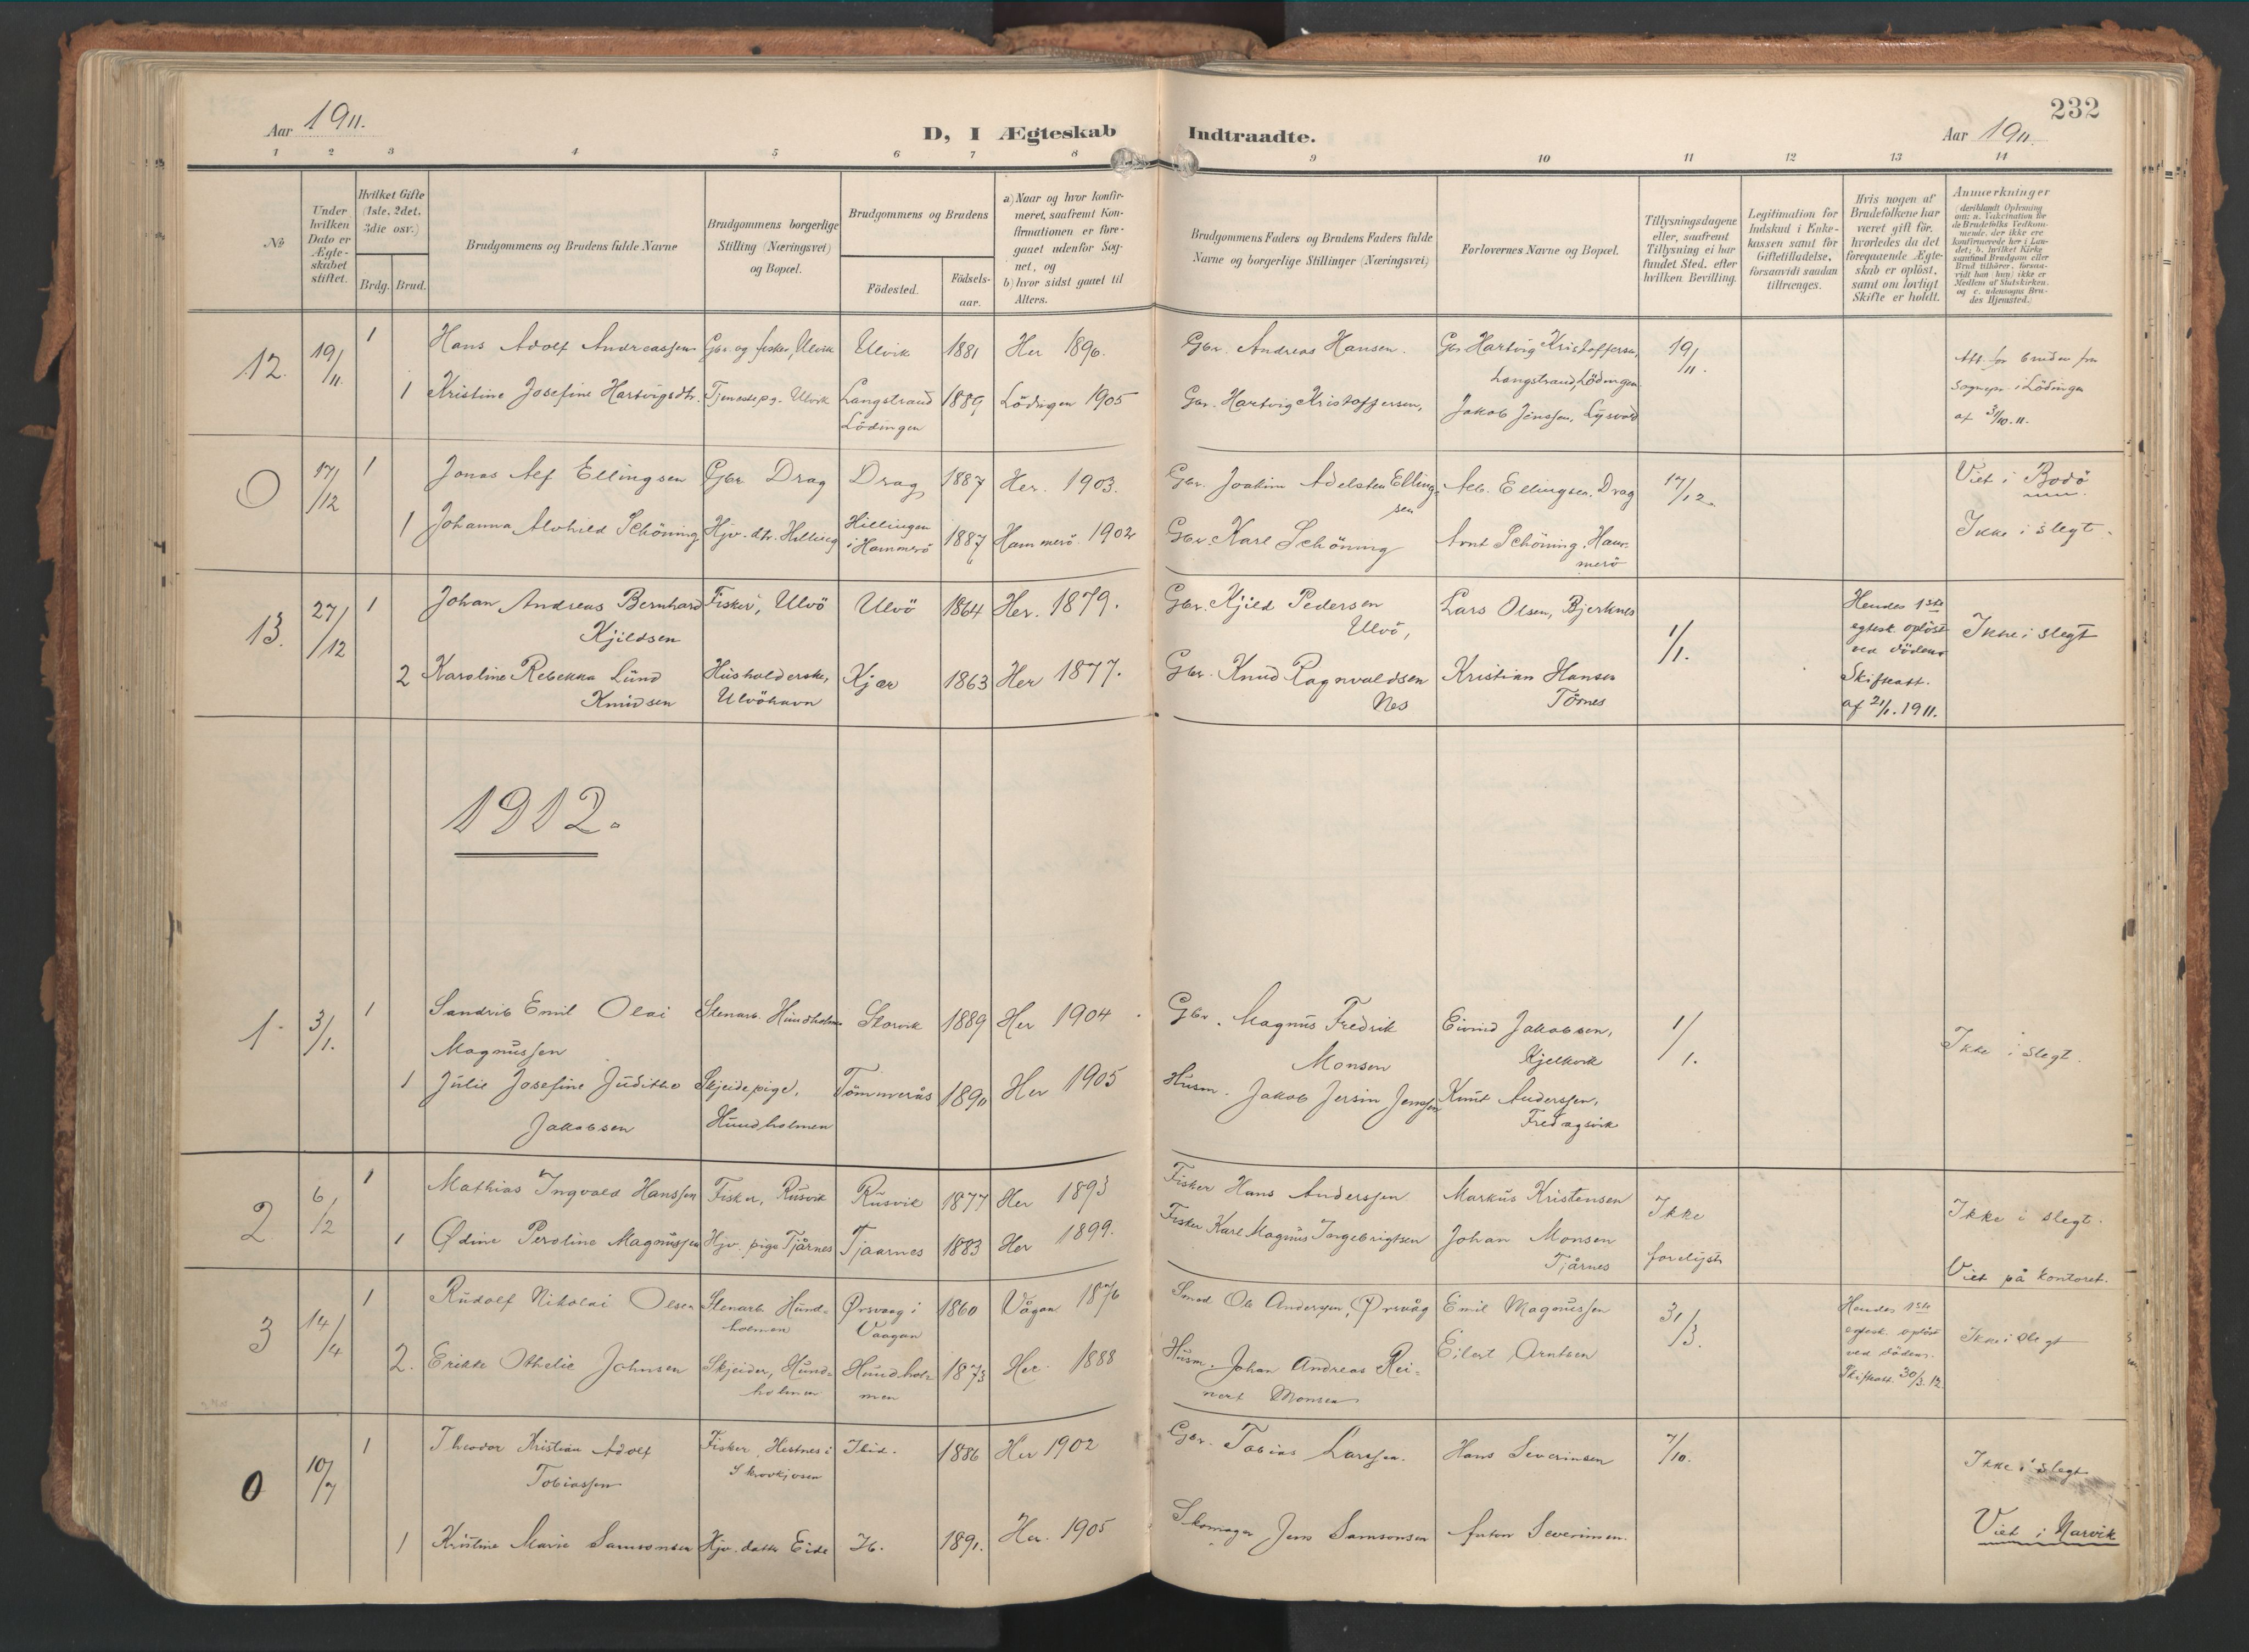 232
Aar 1911.
D, I Ægteskab Indtraadte.
Aar 1911.
1 2 3 4 5 6 7 8 9 10 11 12 13 14
No
Under hvilken Dato er Ægteskabet stiftet.
Hvilket Gifte (1ste, 2det, 3die osv.)
Brdg. Brud.
Brudgommens og Brudens fulde Navne
Brudgommens borgerlige Stilling (Næringsvei) og Bopæl.
Brudgommens og Brudens
Födested.
Födsels-aar.
a) Naar og hvor konfirmeret, saafremt Konfirmationen er foregaaet udenfor Sognet, og
b) hvor sidst gaaet til Alters.
Brudgommens Faders og Brudens Faders fulde Navne og borgerlige Stillinger (Næringsvei)
Forlovernes Navne og Bopæl.
Tillysningsdagene eller, saafremt Tillysning ei har fundet Sted, efter hvilken Bevilling.
Legitimation for Indskud i Enkekassen samt for Giftetilladelse, forsaavidt saadan tiltrænges.
Hvis nogen af Brudefolkene har været gift før, hvorledes da det foregaaende Ægteskab er oplöst, samt om lovligt Skifte er holdt.
Anmerkninger
(deriblandt Oplysning om: a. Vakcination for de Brudefolks Vedkommende, der ikke ere konfirmerede her i Landet; b. hvilket Kirkesamfund Brudgom eller Brud tilhører, forsaavidt han (hun) ikke er Medlem af Statskirken, og c. udensogns Brudes Hjemsted.)
12. 19/11. 1 Hans Adolf Andreassen Gbr. og fisker, Ulvik Ulvik 1881 Her 1896. Gbr. Andreas Hansen. Gbr Hartvig Kristoffersen, Langstrand, Lödingen 19/11.
1 Kristine Josefine Hartvigsdtr. Tjenestepg. Ulvik Langstrand Lödingen 1889 Lödingen 1905 Gbr. Hartvig Kristoffersen, Jakob Jenssen, Lysvold
Att. for bruden fra sognepr. i Lödingen af 31/10.11.
0 17/12 1 Jonas Alf Ellingsen Gbr. Drag Drag 1887 Her. 1903. Gbr. Joakim Adelsten Ellingsen Alb. Ellingsen, Drag 17/12. Viet i Bodö
1 Johanna Alvhild Schöning Hjv. dtr. Hilling Hillingen i Hammerö 1887 Hammerö 1902 Gbr. Karl Schöning Arnt Schöning, Hammerö Ikke i slegt.
13. 27/12 1 Johan Andreas Bernhard Kjeldsen Fisker, Ulvö Ulvö 1864 Her. 1879. Gbr. Kjeld Pedersen Ulvö, Lars Olsen, Bjerknes 1/1.
2 Karoline Rebekka Lund Knudsen Husholderske, Ulvöhavn Kjær 1863 Her 1877. Gbr. Knud Ragnvaldsen Nes Kristian Hansen Törnes
Hendes 1ste egtesk. oplöst ved döden Skifteatt. af 21/1. 1911. Ikke i slegt
1912.
1. 3/1. 1 Sandrik Emil Olai Magnussen Stenarb. Hundholmen Storvik 1889 Her 1904 Gbr. Magnus Fredrik Monsen Eivind Jakobsen, Kjelkvik 1/1. Ikke i slegt.
1 Julie Josefine Judithe Jakobsen Skjeidepige, Hundholmen Tömmerås 1890 Her 1905 Husm. Jakob Jersin Jenssen Knut Anderssen, Fredagsvik
2 6/2 1 Mathias Ingvald Hanssen Fisker, Rusvik Rusvik 1877 Her 1893 Fisker Hans Anderssen Markus Kristensen Ikke forelyst Ikke i slegt.
1 Ødine Peroline Magnussen Hjv. pige Tjårnes Tjaarnes 1883 Her 1899. Fisker Karl Magnus Ingebrigtsen Johan Monsen Tjårnes Viet på kontoret.
3 14/4 1 Rudolf Nikolai Olsen Stenarb. Hundholmen Ørsvaag i Vaagan 1860 Vågan 1876 Smed Ole Andersen, Ørsvåg Emil Magnussen 31/3.
2. Erikke Othelie Johnsen Skjeider, Hundholmen Hundholmen 1873 Her. 1888 Husm. Johan Andreas Reinert Monsen Eilert Arntsen
Hendes 1ste egtesk. oplöst ved döden. Skifteatt. 30/3.12. Ikke i slegt
0 10/7 1 Theodor Kristian Adolf Tobiassen Fisker, Hestnes i Skrovkjosen Ibid. 1886 Her 1902 Gbr. Tobias Larssen. Hans Severinsen 7/10. Ikke i slegt
1 Kristine Marie Samsonsen Hjv. datter Eide Ib. 1891. Her. 1905 Skomager Jens Samsonsen Anton Severinsen. Viet i Narvik